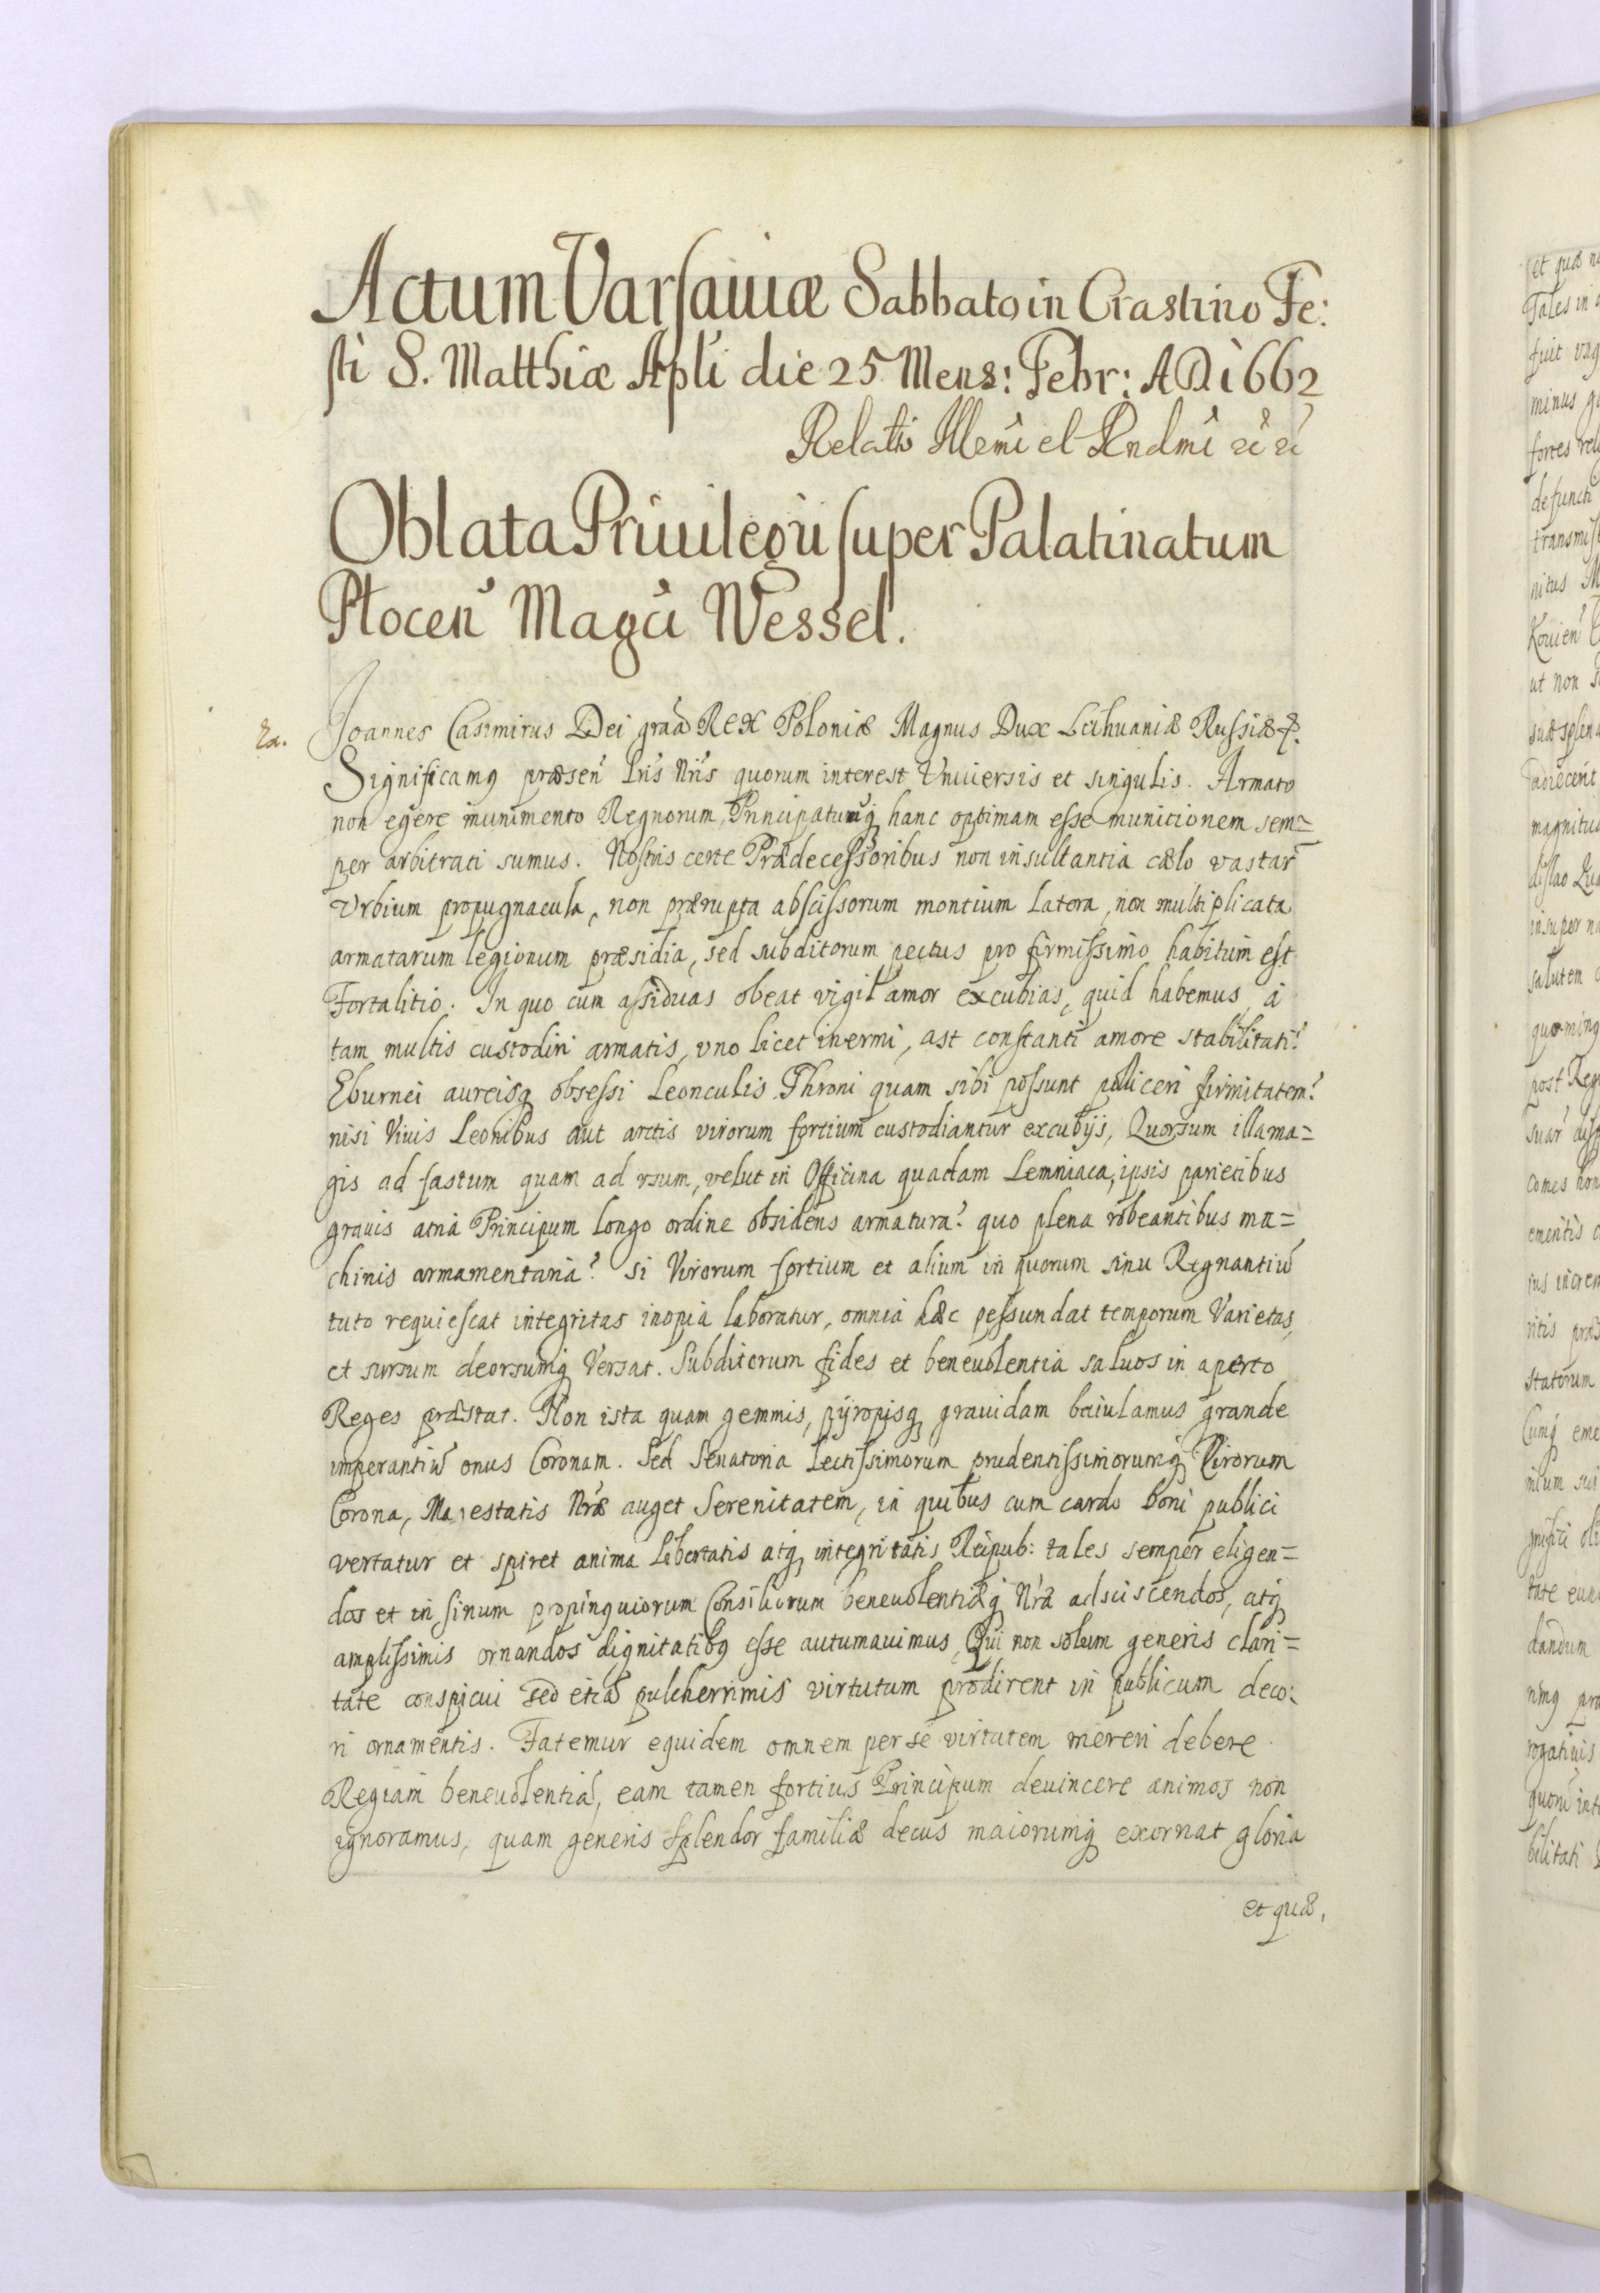 Actum Varsauiæ Sabbato in Crastino Fe:
sti S. Matthiæ Apli die 25 Mens: Febr: AD 1662
Relatio Illmi et Rndmi
Oblata Priuilegii super Palatinatum
Plocen Magci Wessel.
Joannes Casimirus Dei graa REX Poloniæ Magnus Dux Lithuaniæ Russiæ &.
Significamq præsen Lris Nris quorum interest Vniuersis et singulis. Armato
non egere munimento Regnorum, Principatuumq hanc optimam esse municionem sem=
per arbitrati sumus. Nostris certe Prædecessoribus non insultantia cælo vastar
Vrbium propugnacula, non prærupta abscissorum montium latera, non multiplicata
armatarum legionum præsidia, sed subditorum pectus pro firmissimo habitum est
Fortalitio. In quo cum assiduas obeat vigil amor excubias, quid habemus à
tam multis custodiri armatis, vno licet inermi, ast constanti amore stabilitati?
Eburnei aureisq obsessi Leonculis Throni quam sibi possunt polliceri firmitatem?
nisi Viuis Leonibus aut arctis virorum fortium custodiantur excubijs, Quorsum illa ma=
gis ad fastum quam ad vsum, velut in Officina quadam Lemniaca, ipsis parietibus
grauis atria Principum longo ordine obsidens armatura? quo plena robeantibus ma=
chinis armamentaria? si Virorum fortium et alium in quorum sinu Regnantiu
tuto requiescat integritas inopia laboratur, omnia hæc pessundat temporum Varietas,
et sursum deorsumq Versat. Subditorum fides et beneuolentia saluos in aperto
Reges præstat. Non ista quam gemmis, pyropisq grauidam baiulamus grande
imperantiu onus Coronam. Sed Senatoria Lectissimorum prudentissimorumq Virorum
Corona, Maiestatis Nræ auget Serenitatem, in quibus cum cardo boni publici
vertatur et spiret anima Libertatis atq integritatis Reipub: tales semper eligen=
dos et in sinum propinquiorum Consiliorum beneuolentiæq Nra adsciscendos, atq
amplissimis ornandos dignitatibq esse autumauimus, Qui non solum generis clari=
tate conspicui sed etia pulcherrimis virtutum prodirent in publicum deco:
ri ornamentis. Fatemur equidem omnem per se virtutem mereri debere
Regiam beneuolentia, eam tamen fortius Principum deuincere animos non
ignoramus, quam generis splendor familiæ decus maiorumq exornat gloria
et quæ,